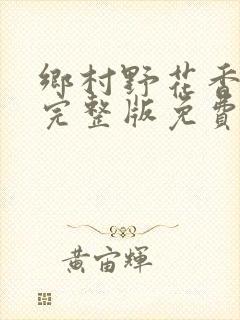 鄉村野花香
完整版免費
黃宙輝